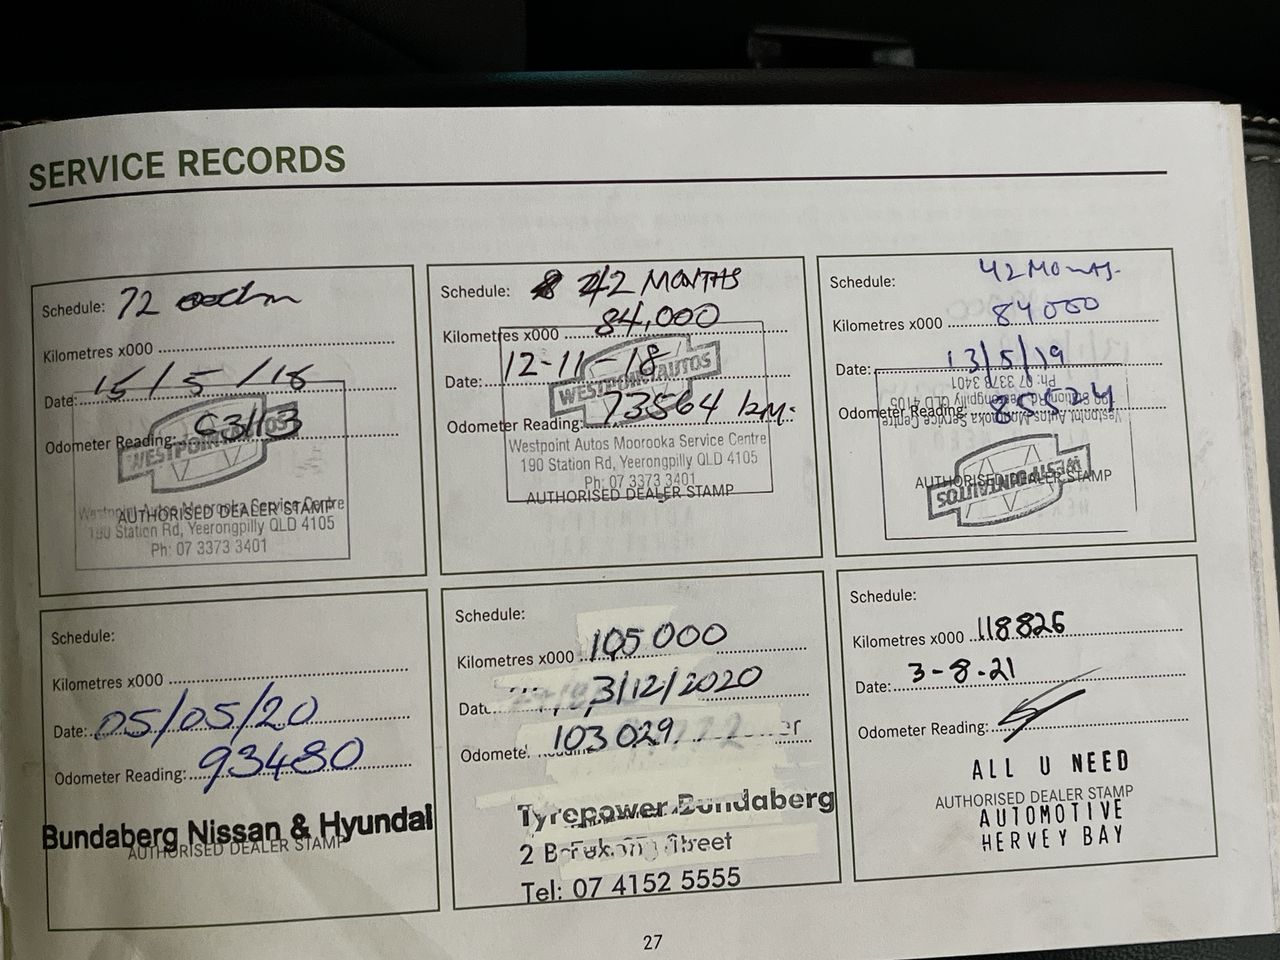 SERVICE RECORDS
Schedule: 72
Kilometres x000
Date: 15/5/18
Odometer Reading: 63113
WESTPOINT AUTOS
Westpoint Autos Moorooka Service Centre
AUTHORISED DEALER STAMP
190 Station Rd, Yeerongpilly QLD 4105
Ph: 07 3373 3401
Schedule: 42 MONTHS
Kilometres x000 84,000
Date: 12-11-18
WESTPOINT AUTOS
Odometer Reading: 73564 KM.
Westpoint Autos Moorooka Service Centre
190 Station Rd, Yeerongpilly QLD 4105
Ph: 07 3373 3401
AUTHORISED DEALER STAMP
Schedule: 42 MONTHS.
Kilometres x000 84000
Date: 13/5/19
Ph: 07 3373 3401
190 Station Rd, Yeerongpilly QLD 4105
Odometer Reading:
Westpoint Autos Moorooka Service Centre
WESTPOINT AUTOS
AUTHORISED DEALER STAMP
Schedule:
Kilometres x000
Date: 05/05/20
Odometer Reading: 93480
Bundaberg Nissan & Hyundai
AUTHORISED DEALER STAMP
Schedule:
Kilometres x000 105000
Dat 3/12/2020
Odomete 103029
Tyrepower Bundaberg
2 Street
Tel: 07 4152 5555
Schedule:
Kilometres x000 118826
Date: 3-8-21
Odometer Reading:
ALL U NEED
AUTHORISED DEALER STAMP
AUTOMOTIVE
HERVEY BAY
27